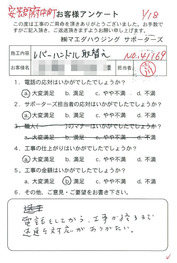 安芸郡府中町
お客様アンケート
1/18
この度は工事のご用命を頂きありがとうございました。お手数で
すがご記入頂き、ご返送頂きますようお願い申し上げます。
㈱マエダハウジング サポーターズ
施工内容 レバーハンドル取替え
NO.41769
お名前 様
1. 電話の応対はいかがでしたでしょうか?
a. 大変満足 b. 満足 c. やや不満 d. 不満
2. サポーターズ担当者の応対はいかがでしたでしょうか?
a. 大変満足 b. 満足 c. やや不満 d. 不満
a. 大変満足 b. 満足 c. やや不満 d. 不満
4. 工事の仕上がりはいかがでしたでしょうか?
a. 大変満足 b. 満足 c. やや不満 d. 不満
5. 工事の金額はいかがでしたでしょうか?
a. 大変満足 b. 満足 c. やや不満 d. 不満
6. その他、ご意見・ご要望をお書き下さい。
電話をしてから、工事が終るまで
迅速な対応がありがたい。